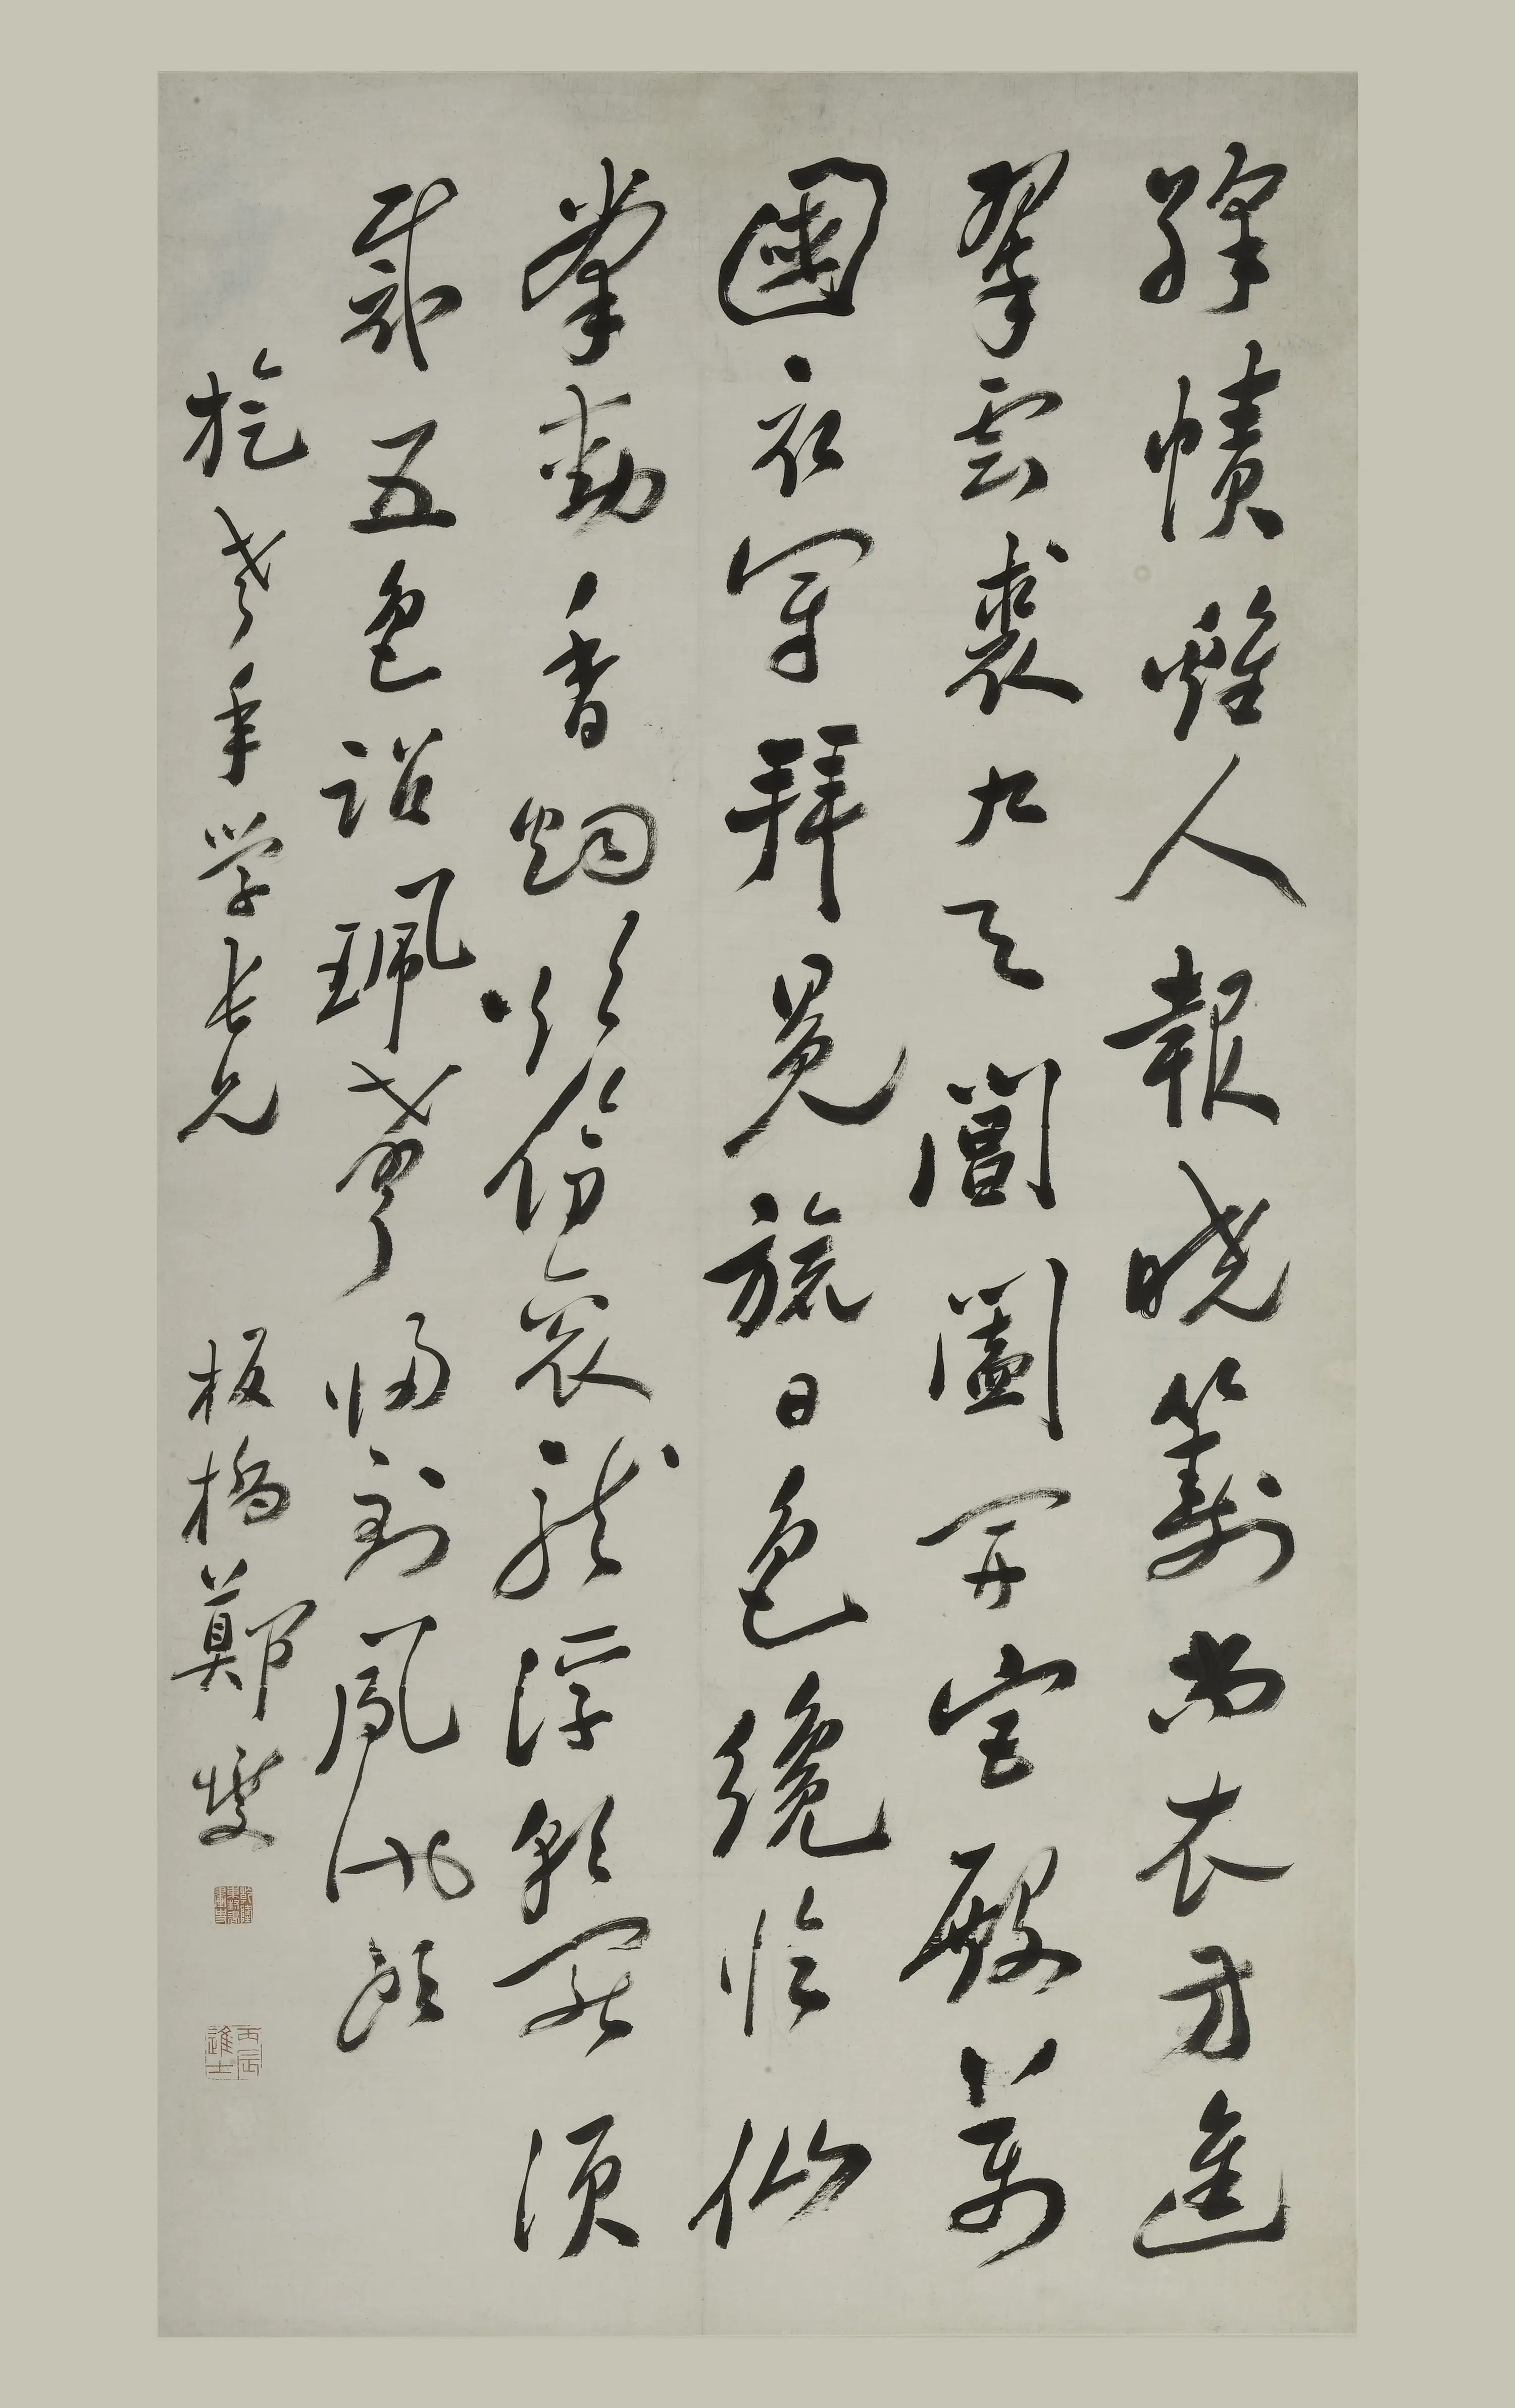 絳幘雞人報曉籌尚衣方進
翠雲裘九天閶闔開宮殿萬
國衣冠拜冕旒日色纔臨仙
掌動香烟欲傍袞龍浮朝罷須
裁五色詔珮聲歸到鳳池頭
老年学長兄 板橋鄭燮
丙辰進士